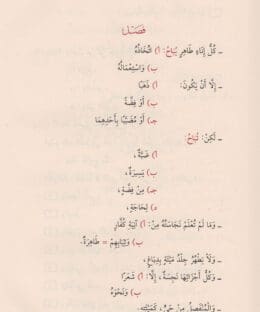 فَصْلٌ
ـ كُلُّ إِنَاءٍ طَاهِرٍ يُبَاحُ: أ) اتِّخَاذُهُ
ب) وَاسْتِعْمَالُهُ
ـ إِلَّا أَنْ يَكُونَ: أ) ذَهَبًا
ب) أَوْ فِضَّةً
جـ) أَوْ مُضَبَّبًا بِأَحَدِهِمَا
ـ لَكِنْ: تُبَاحُ: أ) ضَبَّةٌ،
ب) يَسِيرَةٌ،
جـ) مِنْ فِضَّةٍ،
د) لِحَاجَةٍ،
ـ وَمَا لَمْ تُعْلَمْ نَجَاسَتُهُ مِنْ: أ) آنِيَةِ كُفَّارٍ
ب) وَثِيَابِهِمْ = طَاهِرَةٌ.
ـ وَلَا يَطْهُرُ جِلْدُ مَيْتَةٍ بِدِبَاغٍ،
ـ وَكُلُّ أَجْزَائِهَا نَجِسَةٌ، إِلَّا: أ) شَعْرًا
ب) وَنَحْوَهُ
ـ وَالْمُنْفَصِلُ مِنْ حَيٍّ، كَمَيْتَتِهِ.